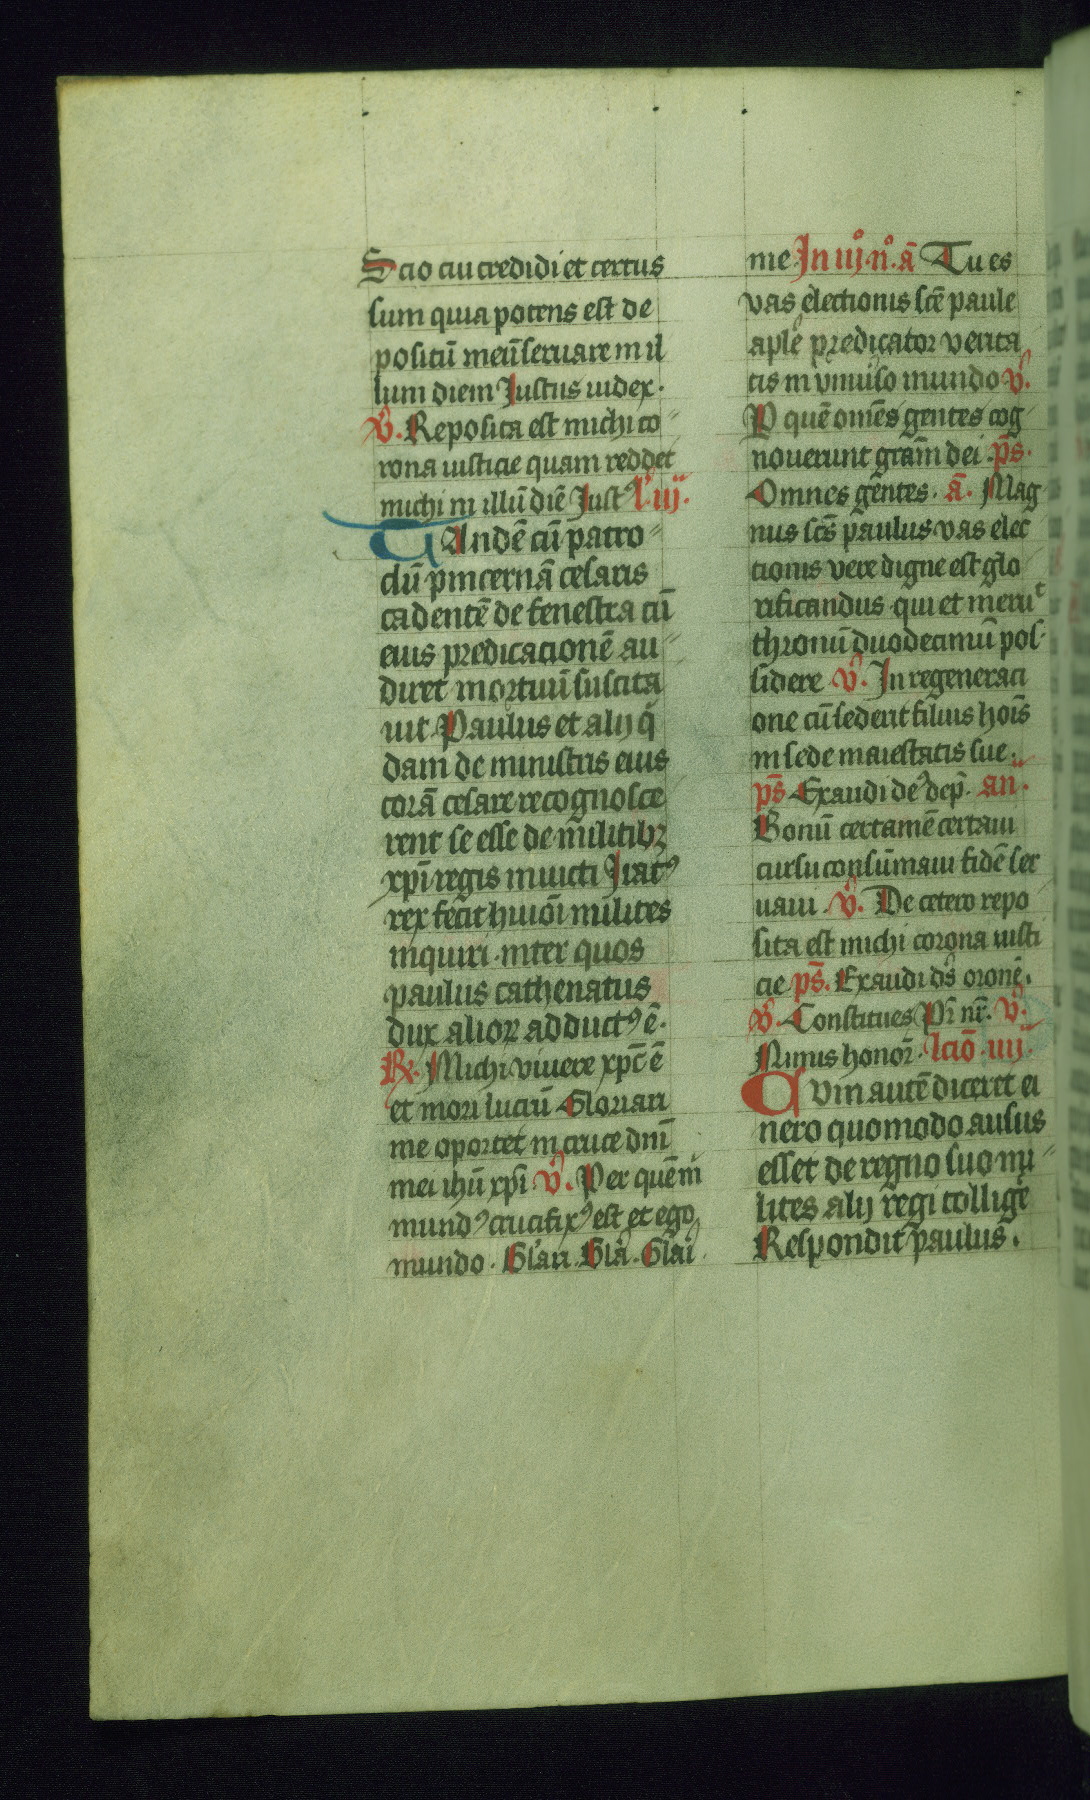 Scio cui credidi et certus
sum quia potens est de
positū meū seruare in il
lum diem Iustus iudex.
v̊. Reposita est michi co
rona iusticie quam reddet
michi in illū diē Iustꝰ l' iij.
Tandē cū patro
clū pincernā cesaris
cadentē de fenestra cū
eius predicacionē au
diret mortuū suscita
uit. Paulus et alij q̄
dam de ministris eius
corā cesare recognosce
rent se esse de militibꝫ
xp̄i regis inuicti Iratꝰ
rex fecit huiōi milites
inquiri. inter quos
paulus cathenatus
dux alioꝝ adductꝰ ē.
R̷. Michi viuere xp̄c ē
et mori lucrū Gloriari
me oportet in cruce dnī
mei ihū xpī v̊. Per quē m̄
mundꝰ crucifixꝰ est et ego
mundo. Gl'ari. Gl'a. Gl'ai.
me In iijº. nº. ā Tu es
vas electionis scē paule
aplē predicator verita
tis in vniuꝰso mundo v̊.
P quē omēs gentes cog
nouerunt grām dei. p̄s.
Omnes gentes. ā. Mag
nus scs̄ paulus vas elec
tionis vere digne est glo
rificandus. qui et meruᵗ
thronū duodecimū pos
sidere v̊. In regeneraci
one cū sederit filius hoīs
in sede maiestatis sue.
p̄s Exaudi deꝰ dep̄. an̄.
Bonū certamē certaui
cursū consūmaui fidē ser
uaui. v̊. De cetero repo
sita est michi corona iusti
cie p̄s. Exaudi ds̄ oronē.
v̊. Constitues Pr̄ nr̄. v̊.
Nimis honor̄. lcīo. iiij
Cvm autē diceret ei
nero quomodo ausus
esset de regno suo mi
lites alij regi colligē
Respondit paulus.